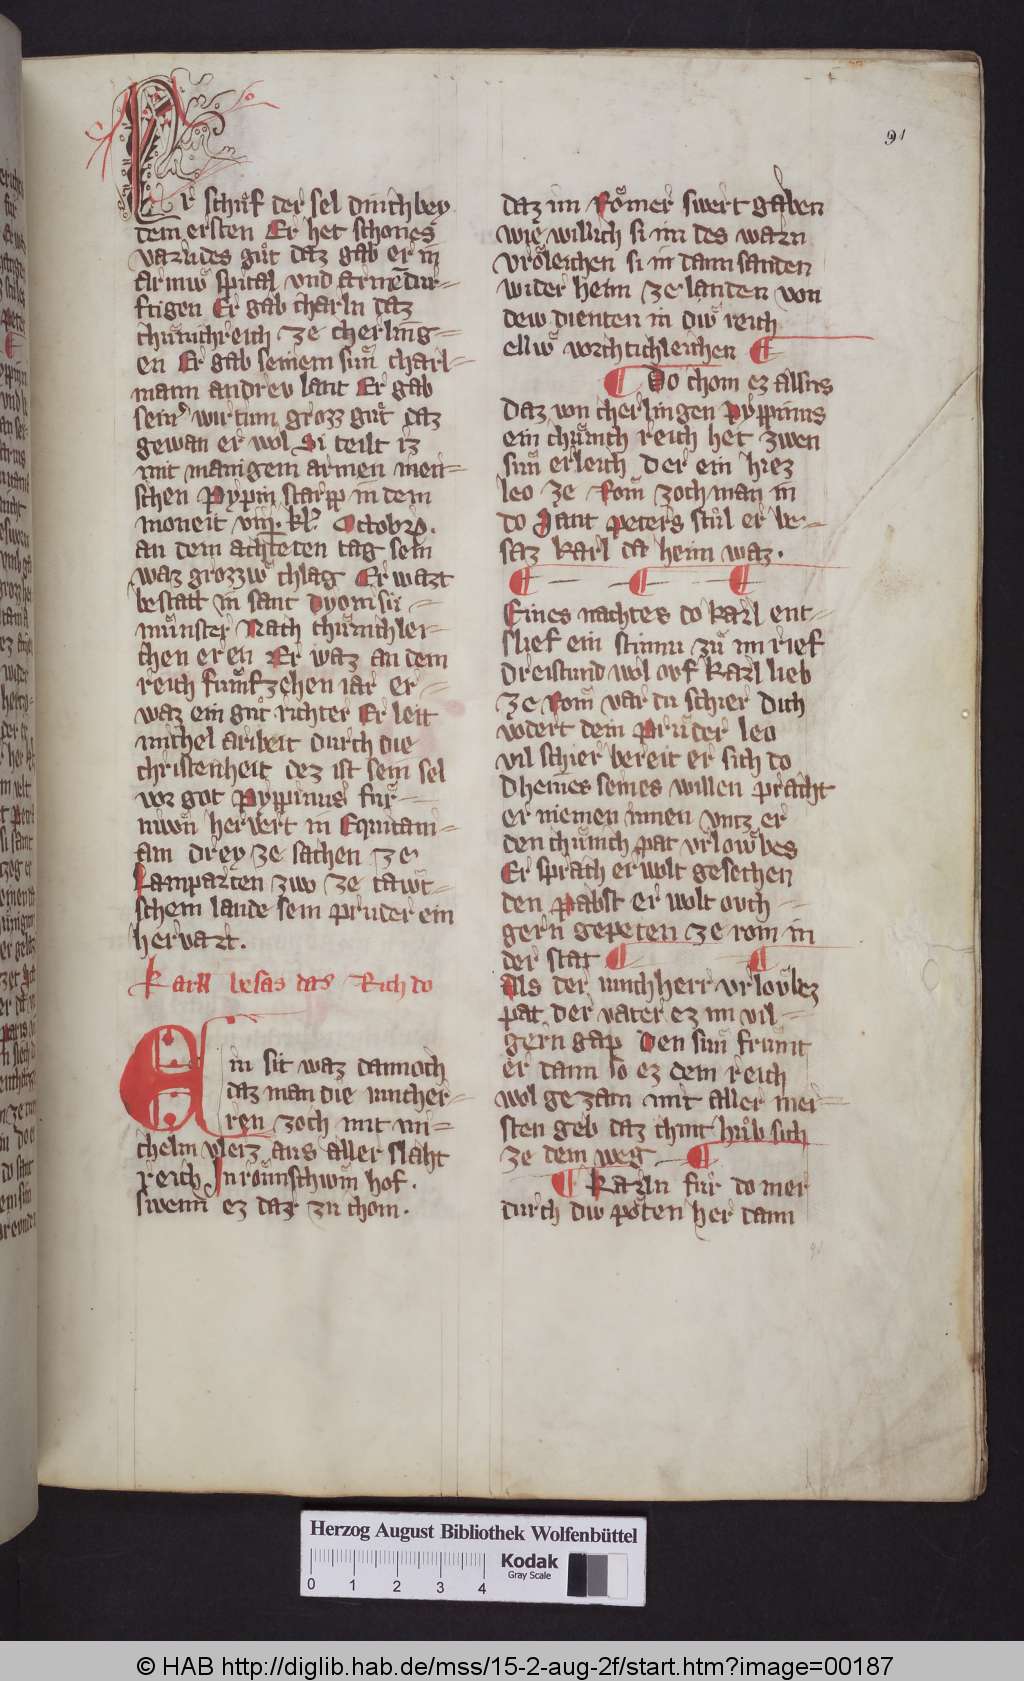 91
Er schuͦf der sel dinich bey
dem ersten Er het schones
varundes guͦt daz gab er in
armiw spital vnd arme dur-
ftigen Er gab charln daz
chuͤnichreich ze cherling-
en Er gab seinem suͤn charl-
mann andrev lant Er gab
seinr wirtinn grozz guͦt daz
gewan er wol Si teilt iz
mit manigem armen men-
schen Pypin starpp in dem
moneit viij. kl. Octobr.
an dem achteten tag sein
waz grozzw chlag Er wart
bestatt in sant Dyonisii
muͤnster Nach chuͤnichlei-
chen eren Er waz an dem
reich fumfzehen iar er
waz ein guͦt richter Er leit
michel aribeit durch die
christenheit dez ist sein sel
vor got Pyppinus fuͤr
niwn hervert in Equitani-
am drey ze sachen ze
Lamparten zwo ze tawt-
schem lande sein pruder ein
hervart.
Karll besas das Rich do
Ein sit waz dannoch
daz man die iuncher-
ren zoch mit mi-
chelm vleiz aus aller slaht
reich In roͤmischwm hof.
swenn ez dar zu chom.
daz im Roͤmer swert gaben
wie willich si im des warn
vroͤleichen si in dann sanden
wider heim ze landen von
dew dienten in diw reich
ellw vorchtichleichen
Do chom ez alsus
daz von cherlingen Pyppinus
ein chuͤnich reich het zwen
suͤn erleich Der ein hiez
leo ze Rom zoch man in
do Sant peters stuͦl er be-
saz karl da heim waz.
Eines nachtes do karl ent-
slief ein stimm zuͦ im rief
dreistund wol orf karl lieb
ze Rom var du schier dich
vodert dein pruͦder leo
vil schier bereit er sich do
Dheines seines willen pracht
er niemen innen vntz er
den chuͤnich pat vrlowbes
Er sprach er wolt gesechen
den pabst er wolt ovch
gern gepeten ze rom in
der stat
Als der iunchherr vrloubez
pat der vater ez im vil
gern gap Den suͤn frumt
er dann so ez dem reich
wol gezam mit aller mei-
sten geb daz chint huͦb sich
ze dem weg
Karln fuͤr do mer
durch diw poten her dann
Herzog August Bibliothek Wolfenbüttel
0 1 2 3 4
Kodak
Gray Scale
© HAB http://diglib.hab.de/mss/15-2-aug-2f/start.htm?image=00187